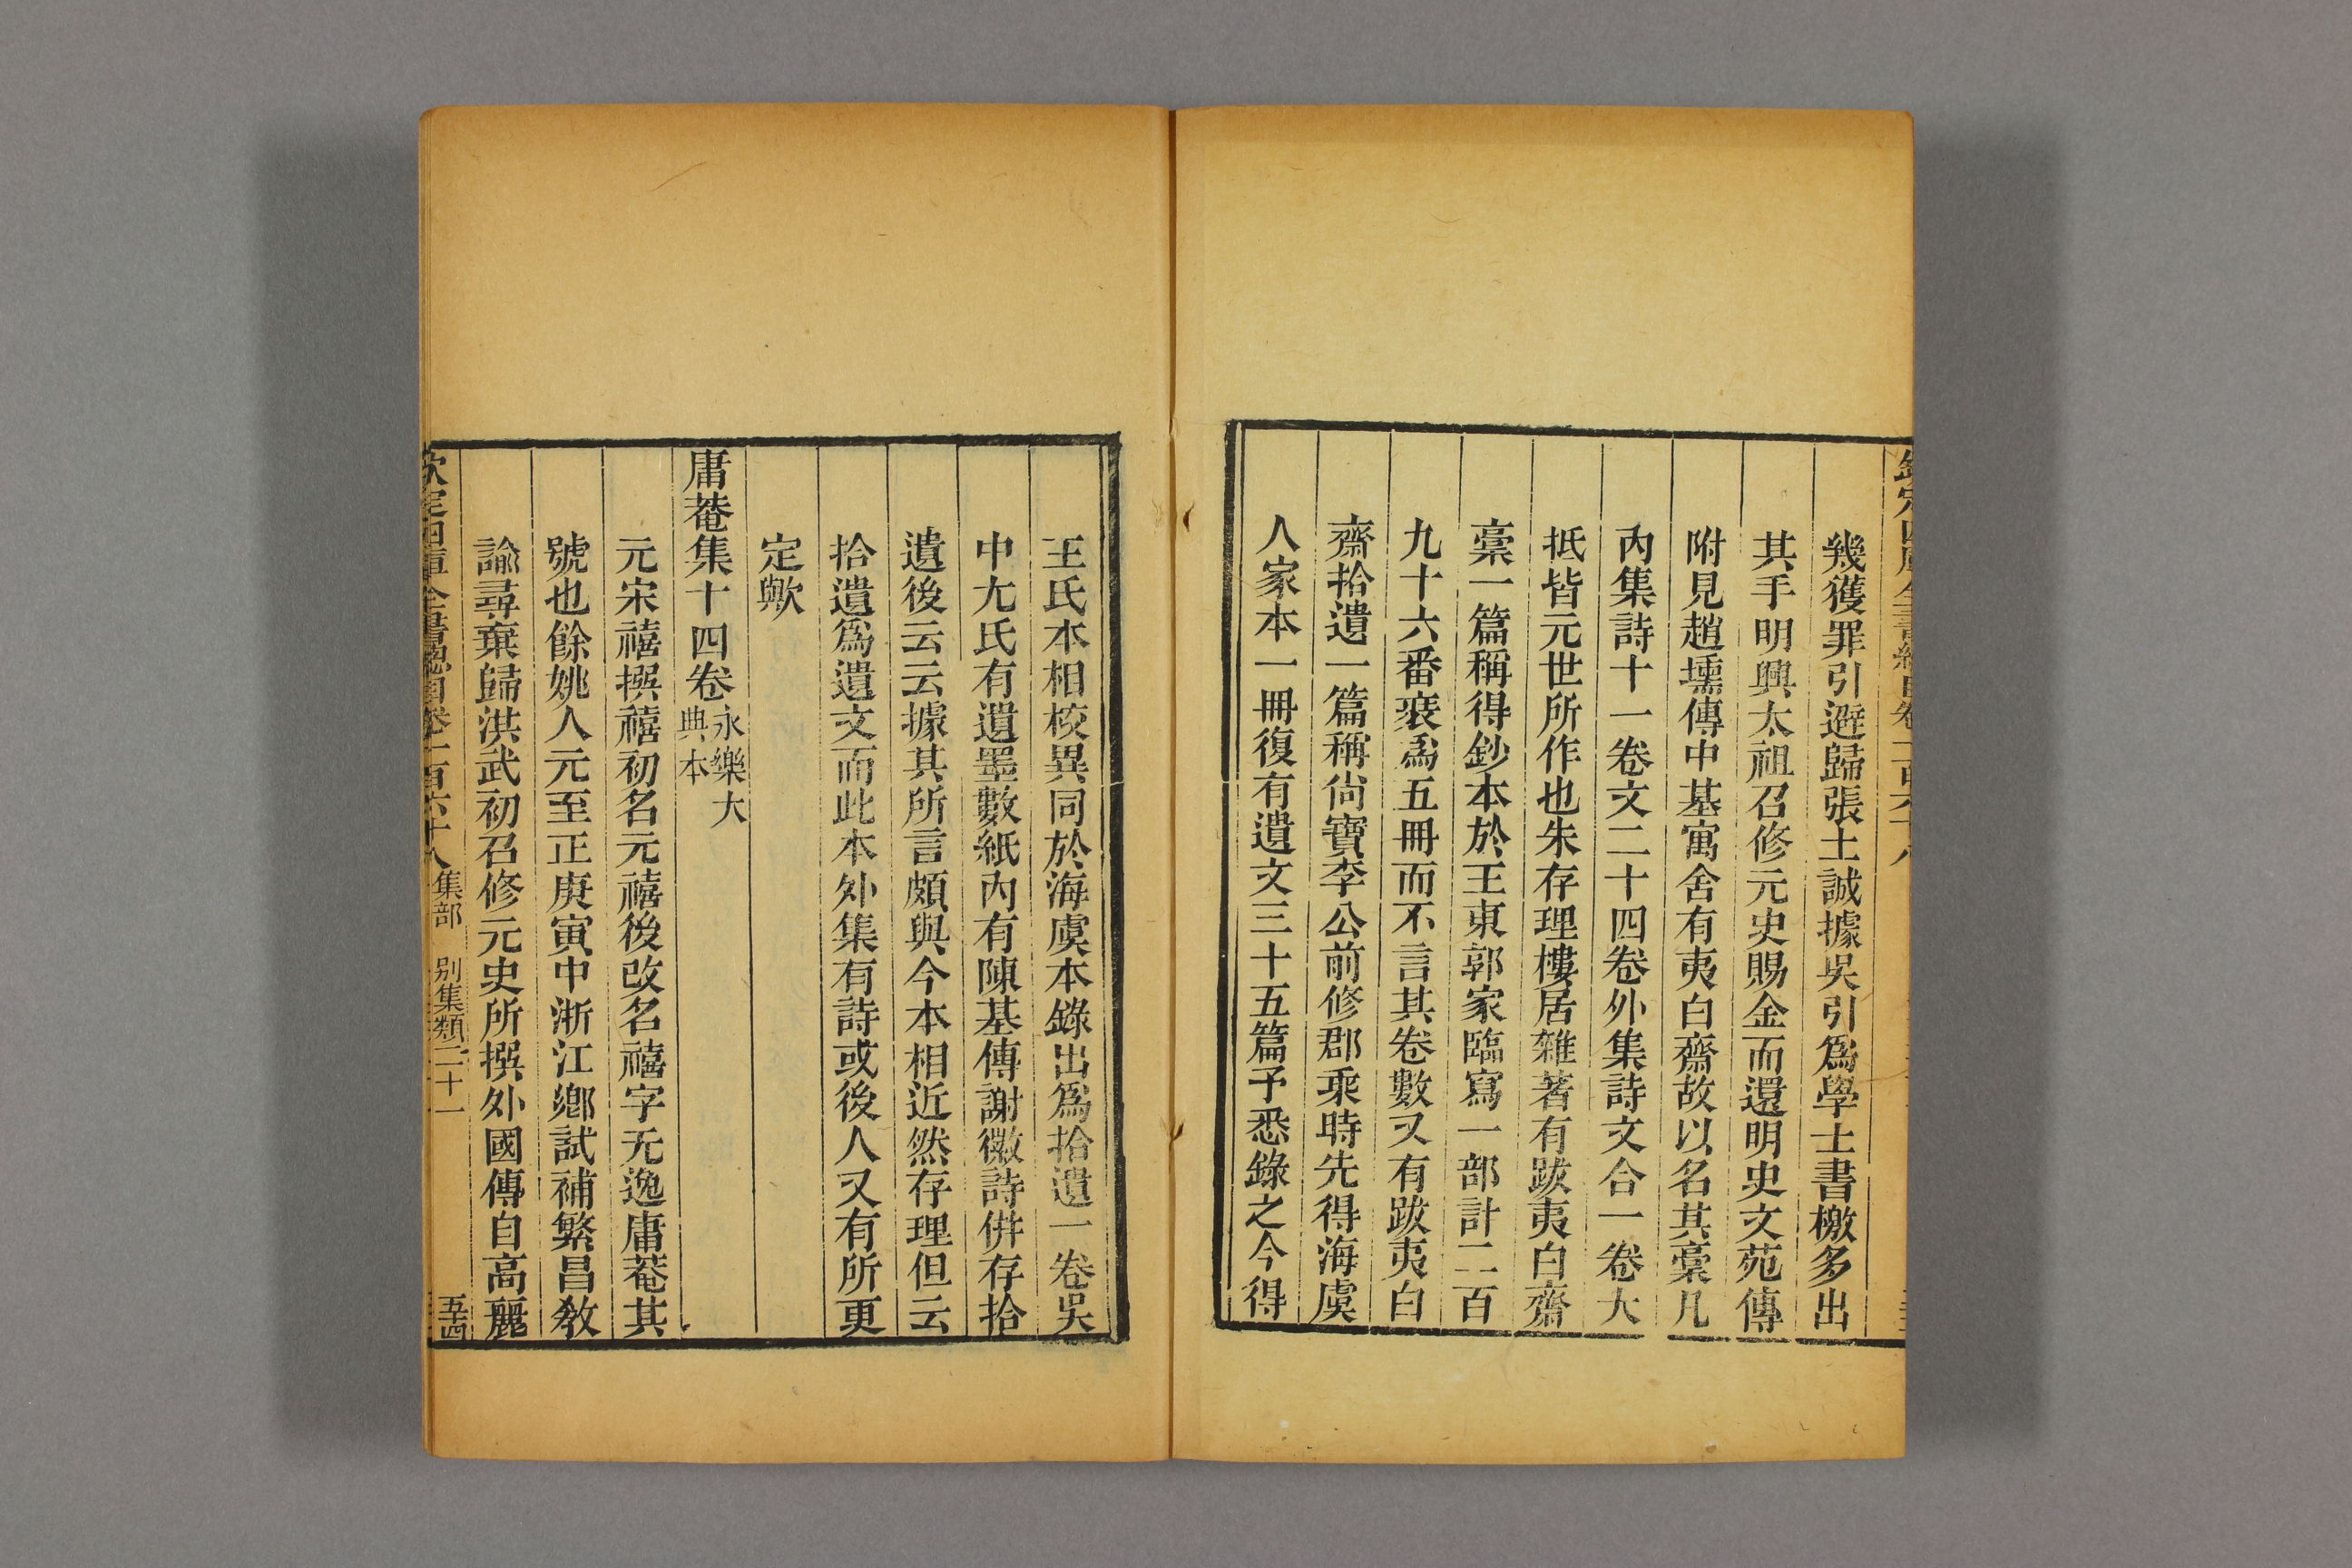 幾獲罪引避歸張士誠據吳引爲學士書檄多出
其手明興太祖召修元史賜金而還明史文苑傳
附見趙壎傳中基寓舍有夷白齋故以名其稾凡
內集詩十一卷文二十四卷外集詩文合一卷大
抵皆元世所作也朱存理樓居雜著有跋夷白齋
稾一篇稱得鈔本於王東郭家臨寫一部計二百
九十六番裝爲五冊而不言其卷數又有跋夷白
齋拾遺一篇稱尚寶李公前修郡乘時先得海虞
人家本一冊復有遺文三十五篇予悉錄之今得
王氏本相校異同於海虞本錄出爲拾遺一卷吳
中尢氏有遺墨數紙內有陳基傳謝徽詩倂存拾
遺後云云據其所言頗與今本相近然存理但云
拾遺爲遺文而此本外集有詩或後人又有所更
定歟
庸菴集十四卷永樂大典本
元宋禧撰禧初名元禧後改名禧字无逸庸菴其
號也餘姚人元至正庚寅中浙江鄉試補繁昌教
諭尋棄歸洪武初召修元史所撰外國傳自高麗
欽定四庫全書總目卷一百六十八 集部 別集類二十一 五十四